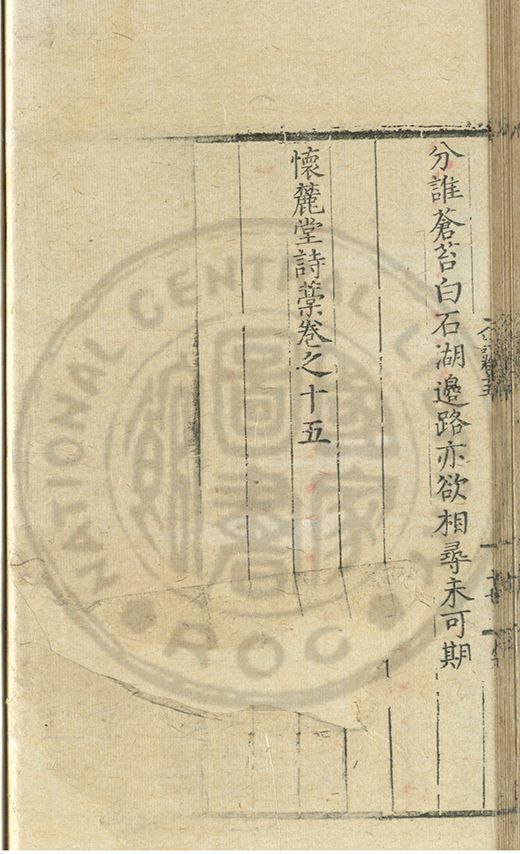 分誰蒼苔白石湖邉路亦欲相尋未可期
懷麓堂詩藁卷之十五
NATIONAL CENTRAL L
ROC
國家圖書館